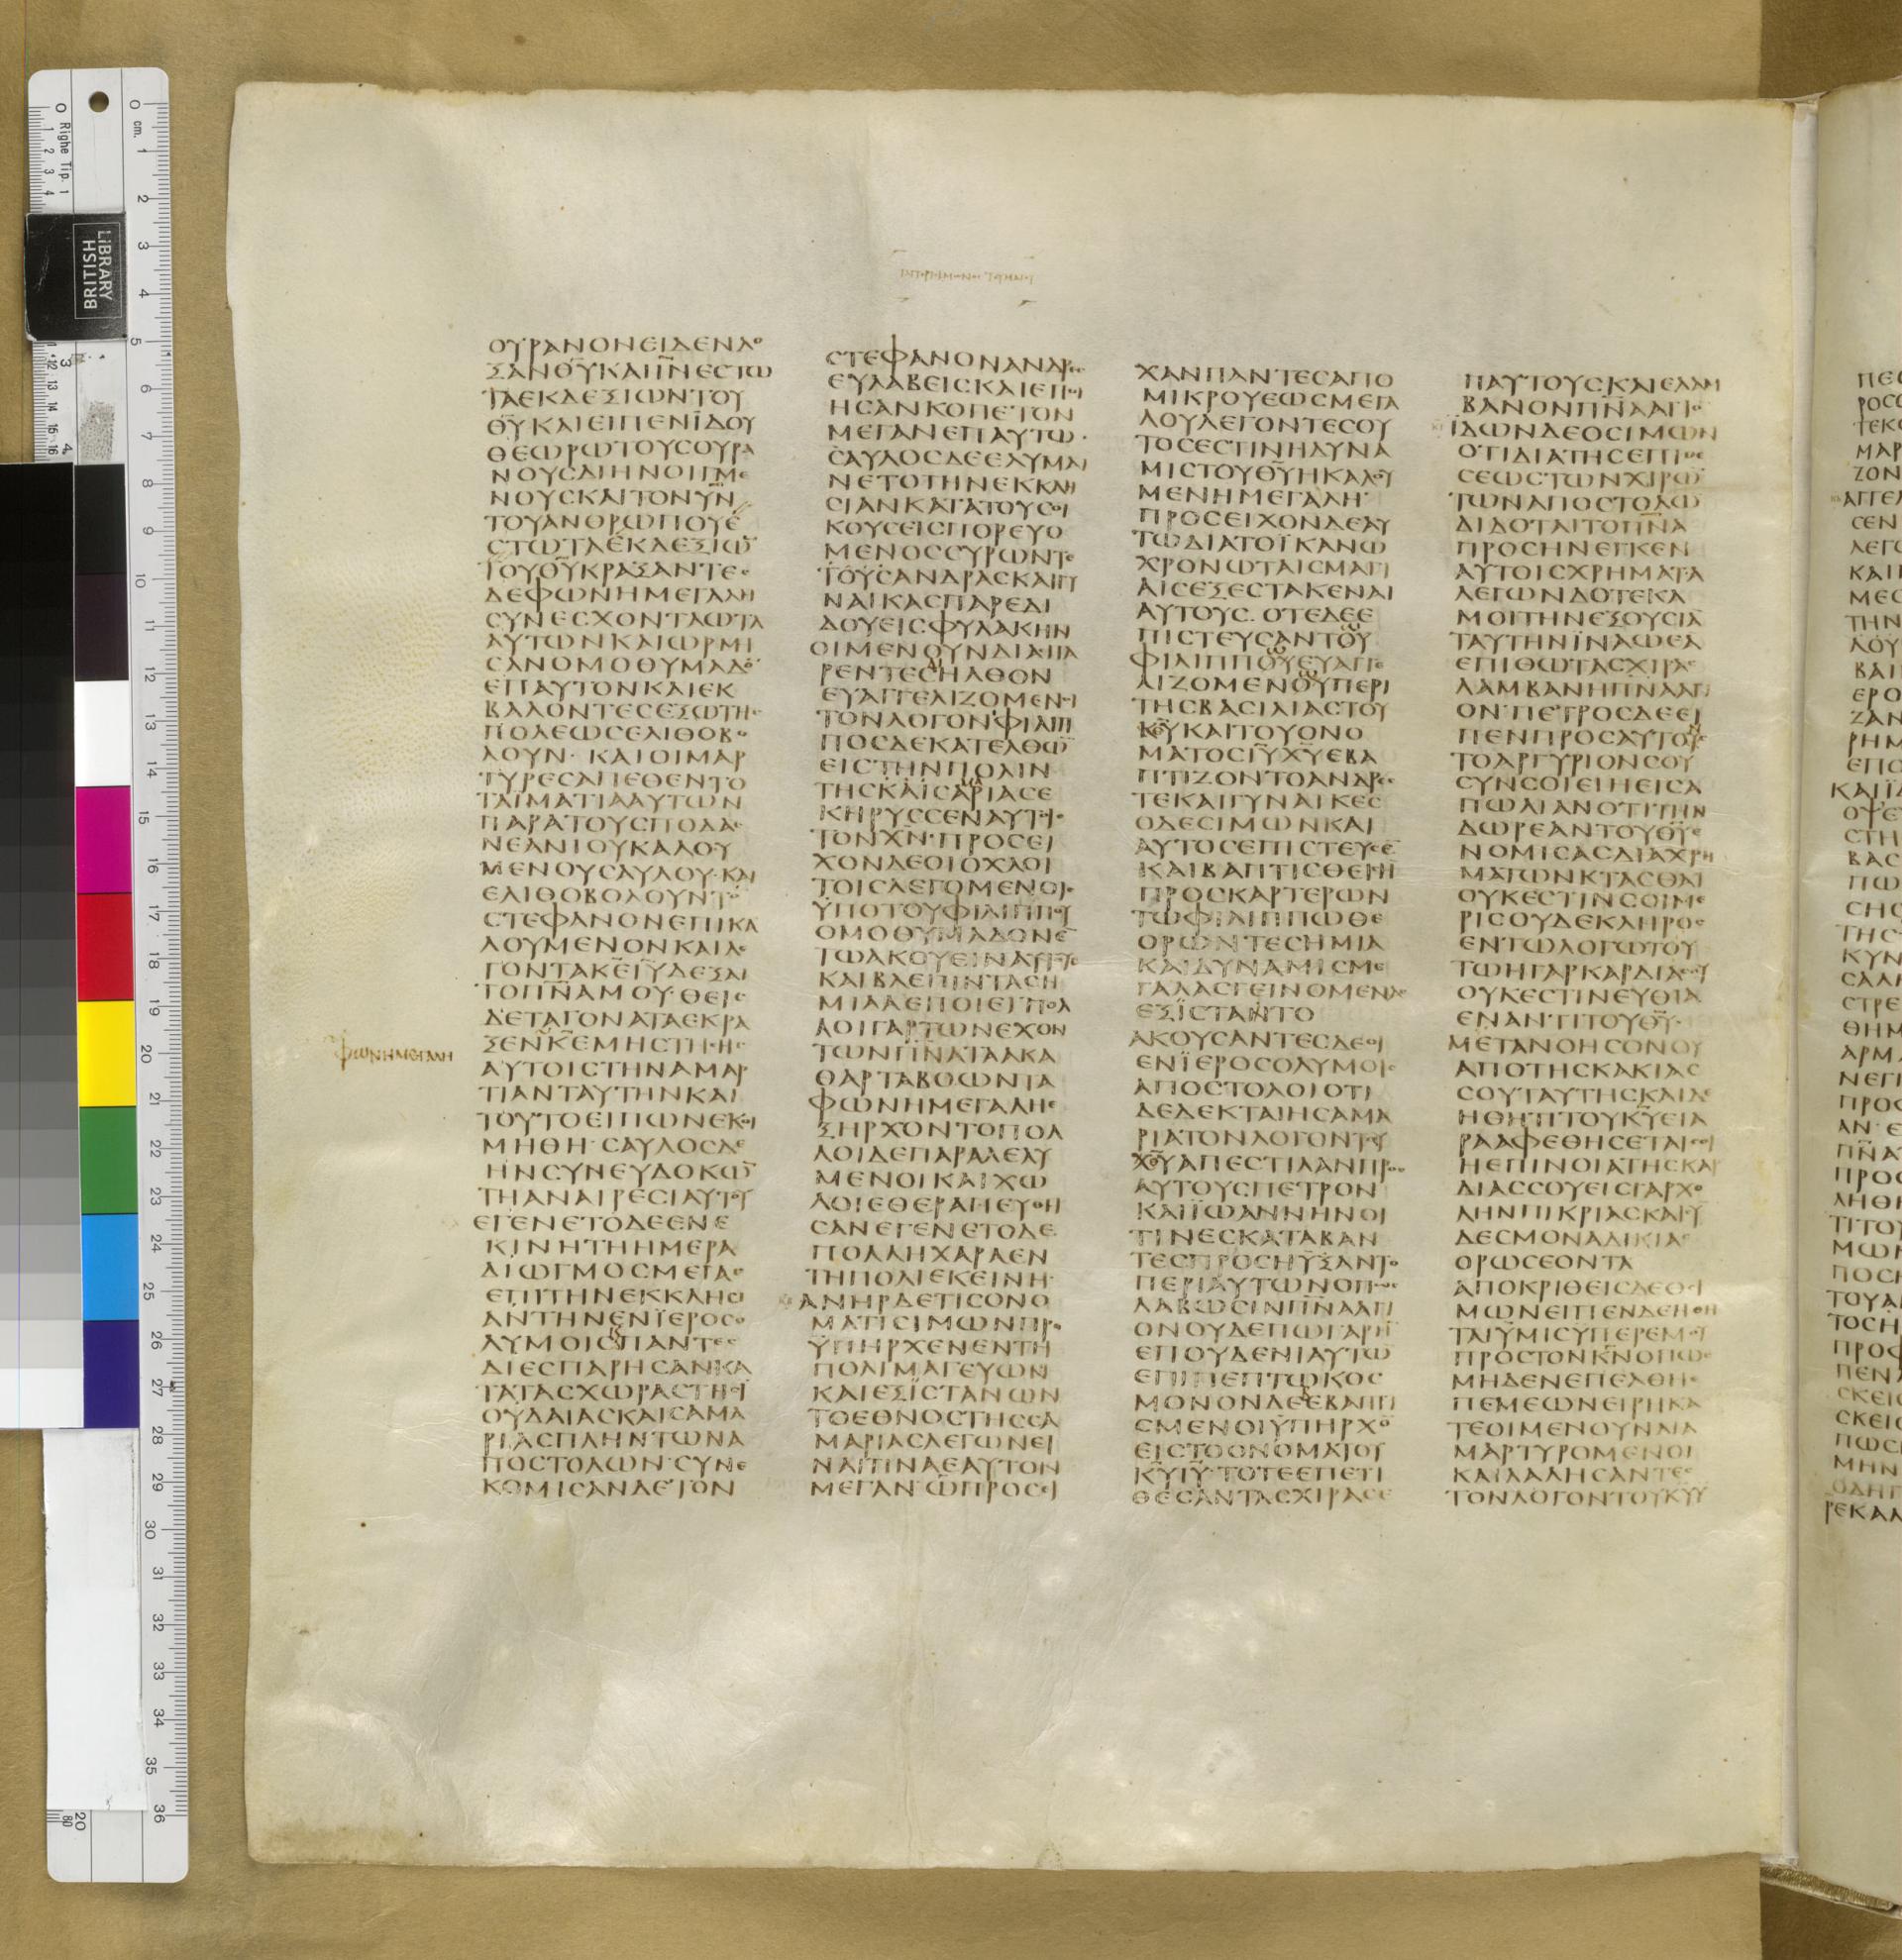 ΟΥΡΑΝΟΝΕΙΔΕΝΔΟ
ΞΑΝΘΥΚΑΙΙΝΕΣΤΩ
ΤΑΕΚΔΕΞΙΩΝΤΟΥ
ΘΥΚΑΙΕΙΠΕΝΙΔΟΥ
ΘΕΩΡΩΤΟΥΣΟΥΡΑ
ΝΟΥΣΔΙΗΝΟΙΓΜΕ
ΝΟΥΣΚΑΙΤΟΝΥΝ
ΤΟΥΑΝΘΡΩΠΟΥΕ
ΣΤΩΤΑΕΚΔΕΞΙΩ
ΤΟΥΘΥΚΡΑΞΑΝΤΕΣ
ΔΕΦΩΝΗΜΕΓΑΛΗ
ΣΥΝΕΣΧΟΝΤΑΩΤΑ
ΑΥΤΩΝΚΑΙΩΡΜΗ
ΣΑΝΟΜΟΘΥΜΑΔΟ
ΕΠΑΥΤΟΝΚΑΙΕΚ
ΒΑΛΟΝΤΕΣΕΞΩΤΗΣ
ΠΟΛΕΩΣΕΛΙΘΟΒΟ
ΛΟΥΝ·ΚΑΙΟΙΜΑΡ
ΤΥΡΕΣΑΠΕΘΕΝΤΟ
ΤΑΙΜΑΤΙΑΑΥΤΩΝ
ΠΑΡΑΤΟΥΣΠΟΔΑΣ
ΝΕΑΝΙΟΥΚΑΛΟΥ
ΜΕΝΟΥΣΑΥΛΟΥ·ΚΑΙ
ΕΛΙΘΟΒΟΛΟΥΝΤΟ
ΣΤΕΦΑΝΟΝΕΠΙΚΑ
ΛΟΥΜΕΝΟΝΚΑΙΛΕ
ΓΟΝΤΑΚΕΙΥΔΕΞΑΙ
ΤΟΠΝΑΜΟΥ·ΘΕΙΣ
ΔΕΤΑΓΟΝΑΤΑΕΚΡΑ
ΞΕΝΚΕΜΗΣΤΗΣΗΣ
ΦΩΝΗΜΕΓΑΛΗ
ΑΥΤΟΙΣΤΗΝΑΜΑΡ
ΤΙΑΝΤΑΥΤΗΝΚΑΙ
ΤΟΥΤΟΕΙΠΩΝΕΚΟΙ
ΜΗΘΗ·ΣΑΥΛΟΣΔΕ
ΗΝΣΥΝΕΥΔΟΚΩ
ΤΗΑΝΑΙΡΕΣΙΑΥΤΟΥ
ΕΓΕΝΕΤΟΔΕΕΝΕ
ΚΙΝΗΤΗΗΜΕΡΑ
ΔΙΩΓΜΟΣΜΕΓΑΣ
ΕΠΙΤΗΝΕΚΚΛΗΣΙ
ΑΝΤΗΝΕΝΙΕΡΟΣΟ
ΛΥΜΟΙΣΠΑΝΤΕΣ
ΔΙΕΣΠΑΡΗΣΑΝΚΑ
ΤΑΤΑΣΧΩΡΑΣΤΗΣΙ
ΟΥΔΑΙΑΣΚΑΙΣΑΜΑ
ΡΙΑΣΠΛΗΝΤΩΝΑ
ΠΟΣΤΟΛΩΝ·ΣΥΝΕ
ΚΟΜΙΣΑΝΔΕΤΟΝ
ΣΤΕΦΑΝΟΝΑΝΔΡΕΣ
ΕΥΛΑΒΕΙΣΚΑΙΕΠΟΙ
ΗΣΑΝΚΟΠΕΤΟΝ
ΜΕΓΑΝΕΠΑΥΤΩ·
ΣΑΥΛΟΣΔΕΕΛΥΜΑΙ
ΝΕΤΟΤΗΝΕΚΚΛΗ
ΣΙΑΝΚΑΤΑΤΟΥΣΟΙ
ΚΟΥΣΕΙΣΠΟΡΕΥΟ
ΜΕΝΟΣΣΥΡΩΝΤΕ
ΤΟΥΣΑΝΔΡΑΣΚΑΙΓΥ
ΝΑΙΚΑΣΠΑΡΕΔΙ
ΔΟΥΕΙΣΦΥΛΑΚΗΝ
ΟΙΜΕΝΟΥΝΔΙΑΣΠΑ
ΡΕΝΤΕΣΔΙΗΛΘΟΝ
ΕΥΑΓΓΕΛΙΖΟΜΕΝΟΙ
ΤΟΝΛΟΓΟΝ·ΦΙΛΙΠ
ΠΟΣΔΕΚΑΤΕΛΘΩ
ΕΙΣΤΗΝΠΟΛΙΝ
ΤΗΣΚΑΙΣΑΡΙΑΣΕ
ΚΗΡΥΣΣΕΝΑΥΤΟΙΣ
ΤΟΝΧΝ·ΠΡΟΣΕΙ
ΧΟΝΔΕΟΙΟΧΛΟΙ
ΤΟΙΣΛΕΓΟΜΕΝΟΙΣ
ΥΠΟΤΟΥΦΙΛΙΠΠΟΥ
ΟΜΟΘΥΜΑΔΟΝΕ
ΤΩΑΚΟΥΕΙΝΑΥΤΟΥΣ
ΚΑΙΒΛΕΠΙΝΤΑΣΗ
ΜΙΑΑΕΠΟΙΕΙΠΟΛ
ΛΟΙΓΑΡΤΩΝΕΧΟΝ
ΤΩΝΠΝΑΤΑΑΚΑ
ΘΑΡΤΑΒΟΩΝΤΑ
ΦΩΝΗΜΕΓΑΛΗΕ
ΞΗΡΧΟΝΤΟΠΟΛ
ΛΟΙΔΕΠΑΡΑΛΕΛΥ
ΜΕΝΟΙΚΑΙΧΩ
ΛΟΙΕΘΕΡΑΠΕΥΘΗ
ΣΑΝΕΓΕΝΕΤΟΔΕ
ΠΟΛΛΗΧΑΡΑΕΝ
ΤΗΠΟΛΙΕΚΕΙΝΗ·
ΑΝΗΡΔΕΤΙΣΟΝΟ
ΜΑΤΙΣΙΜΩΝΠΡΟ
ΥΠΗΡΧΕΝΕΝΤΗ
ΠΟΛΙΜΑΓΕΥΩΝ
ΚΑΙΕΞΙΣΤΑΝΩΝ
ΤΟΕΘΝΟΣΤΗΣΣΑ
ΜΑΡΙΑΣΛΕΓΩΝΕΙ
ΝΑΙΤΙΝΑΕΑΥΤΟΝ
ΜΕΓΑΝ·ΩΠΡΟΣΕΙ
ΧΑΝΠΑΝΤΕΣΑΠΟ
ΜΙΚΡΟΥΕΩΣΜΕΓΑ
ΛΟΥΛΕΓΟΝΤΕΣΟΥ
ΤΟΣΕΣΤΙΝΗΔΥΝΑ
ΜΙΣΤΟΥΘΥΗΚΑΛΟΥ
ΜΕΝΗΜΕΓΑΛΗ·
ΠΡΟΣΕΙΧΟΝΔΕΑΥ
ΤΩΔΙΑΤΟΙΚΑΝΩ
ΧΡΟΝΩΤΑΙΣΜΑΓΙ
ΑΙΣΕΞΕΣΤΑΚΕΝΑΙ
ΑΥΤΟΥΣ·ΟΤΕΔΕΕ
ΠΙΣΤΕΥΣΑΝΤΟΥ
ΦΙΛΙΠΠΟΥΕΥΑΓΓΕ
ΛΙΖΟΜΕΝΟΥΠΕΡΙ
ΤΗΣΒΑΣΙΛΙΑΣΤΟΥ
ΚΥΚΑΙΤΟΥΟΝΟ
ΜΑΤΟΣΙΥΧΥΕΒΑ
ΠΤΙΖΟΝΤΟΑΝΔΡΕΣ
ΤΕΚΑΙΓΥΝΑΙΚΕΣ
ΟΔΕΣΙΜΩΝΚΑΙ
ΑΥΤΟΣΕΠΙΣΤΕΥΣΕ
ΚΑΙΒΑΠΤΙΣΘΕΙΣΗ
ΠΡΟΣΚΑΡΤΕΡΩΝ
ΤΩΦΙΛΙΠΠΩΘΕ
ΟΡΩΝΤΕΣΗΜΙΑ
ΚΑΙΔΥΝΑΜΙΣΜΕ
ΓΑΛΑΣΓΕΙΝΟΜΕΝΑΣ
ΕΞΙΣΤΑΝΤΟ
ΑΚΟΥΣΑΝΤΕΣΔΕΟΙ
ΕΝΙΕΡΟΣΟΛΥΜΟΙΣ
ΑΠΟΣΤΟΛΟΙΟΤΙ
ΔΕΔΕΚΤΑΙΗΣΑΜΑ
ΡΙΑΤΟΝΛΟΓΟΝΤΟΥ
ΧΥΑΠΕΣΤΙΛΑΝΠΡΟΣ
ΑΥΤΟΥΣΠΕΤΡΟΝ
ΚΑΙΙΩΑΝΝΗΝΟΙ
ΤΙΝΕΣΚΑΤΑΒΑΝ
ΤΕΣΠΡΟΣΗΥΞΑΝΤΟ
ΠΕΡΙΑΥΤΩΝΟΠΩΣ
ΛΑΒΩΣΙΝΠΝΑΑΓΙ
ΟΝΟΥΔΕΠΩΓΑΡΗ
ΕΠΟΥΔΕΝΙΑΥΤΩ
ΕΠΙΠΕΠΤΩΚΟΣ
ΜΟΝΟΝΔΕΒΑΠΤΙ
ΣΜΕΝΟΙΥΠΗΡΧΟ
ΕΙΣΤΟΟΝΟΜΑΤΟΥ
ΚΥΙΥ·ΤΟΤΕΕΠΕΤΙ
ΘΕΣΑΝΤΑΣΧΙΡΑΣΕ
ΠΑΥΤΟΥΣΚΑΙΕΛΑΜ
ΒΑΝΟΝΠΝΑΑΓΙΟ
ΙΔΩΝΔΕΟΣΙΜΩΝ
ΟΤΙΔΙΑΤΗΣΕΠΙΘΕ
ΣΕΩΣΤΩΝΧΙΡΩ
ΤΩΝΑΠΟΣΤΟΛΩ
ΔΙΔΟΤΑΙΤΟΠΝΑ
ΠΡΟΣΗΝΕΓΚΕΝ
ΑΥΤΟΙΣΧΡΗΜΑΤΑ
ΛΕΓΩΝΔΟΤΕΚΑ
ΜΟΙΤΗΝΕΞΟΥΣΙΑ
ΤΑΥΤΗΝΙΝΑΩΕΑ
ΕΠΙΘΩΤΑΣΧΙΡΑΣ
ΛΑΜΒΑΝΗΠΝΑΑΓΙ
ΟΝ·ΠΕΤΡΟΣΔΕΕΙ
ΠΕΝΠΡΟΣΑΥΤΟ
ΤΟΑΡΓΥΡΙΟΝΣΟΥ
ΣΥΝΣΟΙΕΙΗΕΙΣΑ
ΠΩΛΙΑΝΟΤΙΤΗΝ
ΔΩΡΕΑΝΤΟΥΘΥΕ
ΝΟΜΙΣΑΣΔΙΑΧΡΗ
ΜΑΤΩΝΚΤΑΣΘΑΙ
ΟΥΚΕΣΤΙΝΣΟΙΜΕ
ΡΙΣΟΥΔΕΚΛΗΡΟΣ
ΕΝΤΩΛΟΓΩΤΟΥ
ΤΩΗΓΑΡΚΑΡΔΙΑΣΟΥ
ΟΥΚΕΣΤΙΝΕΥΘΙΑ
ΕΝΑΝΤΙΤΟΥΘΥ·
ΜΕΤΑΝΟΗΣΟΝΟΥ
ΑΠΟΤΗΣΚΑΚΙΑΣ
ΣΟΥΤΑΥΤΗΣΚΑΙΔΕ
ΗΘΗΤΙΤΟΥΚΥΕΙΑ
ΡΑΑΦΕΘΗΣΕΤΑΙΣΟΙ
ΗΕΠΙΝΟΙΑΤΗΣΚΑΡ
ΔΙΑΣΣΟΥΕΙΣΓΑΡΧΟ
ΛΗΝΠΙΚΡΙΑΣΚΑΙΣΥ
ΔΕΣΜΟΝΑΔΙΚΙΑΣ
ΟΡΩΣΕΟΝΤΑ
ΑΠΟΚΡΙΘΕΙΣΔΕΟΣΙ
ΜΩΝΕΙΠΕΝΔΕΗΘΗ
ΤΑΙΥΜΙΣΥΠΕΡΕΜΟΥ
ΠΡΟΣΤΟΝΚΝΟΠΩΣ
ΜΗΔΕΝΕΠΕΛΘΗΕ
ΠΕΜΕΩΝΕΙΡΗΚΑ
ΤΕΟΙΜΕΝΟΥΝΔΙΑ
ΜΑΡΤΥΡΟΜΕΝΟΙ
ΚΑΙΛΑΛΗΣΑΝΤΕΣ
ΤΟΝΛΟΓΟΝΤΟΥΚΥ
BRITISH
LIBRARY
Righe Tip. 1
cm.